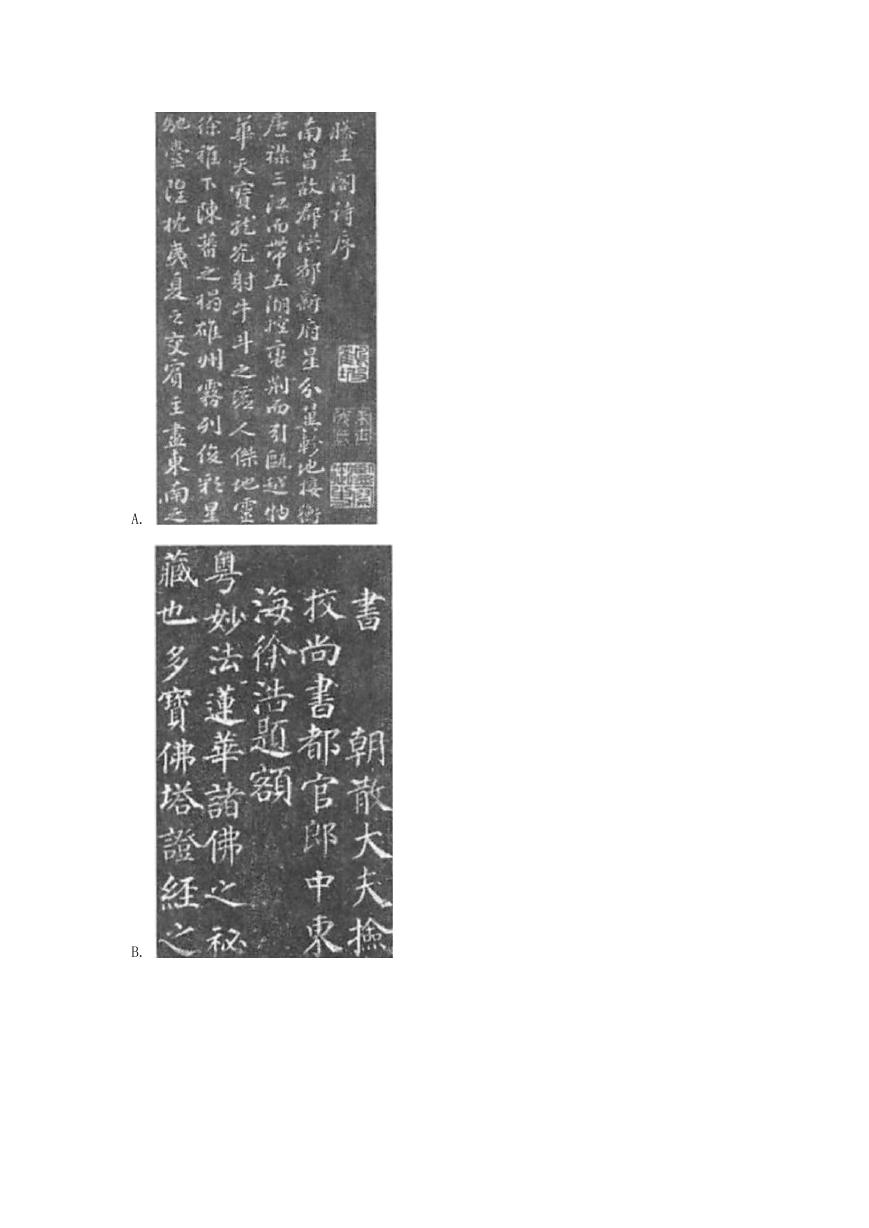 A.
滕王閣詩序
南昌故郡洪都新府星分翼軫地接衡
廬襟三江而帶五湖控蠻荆而引甌越物
華天寳龍光射牛斗之墟人傑地靈
徐稚下陳蕃之榻雄州霧列俊彩星
馳臺隍枕夷夏之交賓主盡東南之
B.
書 朝散大夫撿
挍尚書都官郎中東
海徐浩題額
粵妙法蓮華諸佛之祕
藏也多寶佛塔證經之